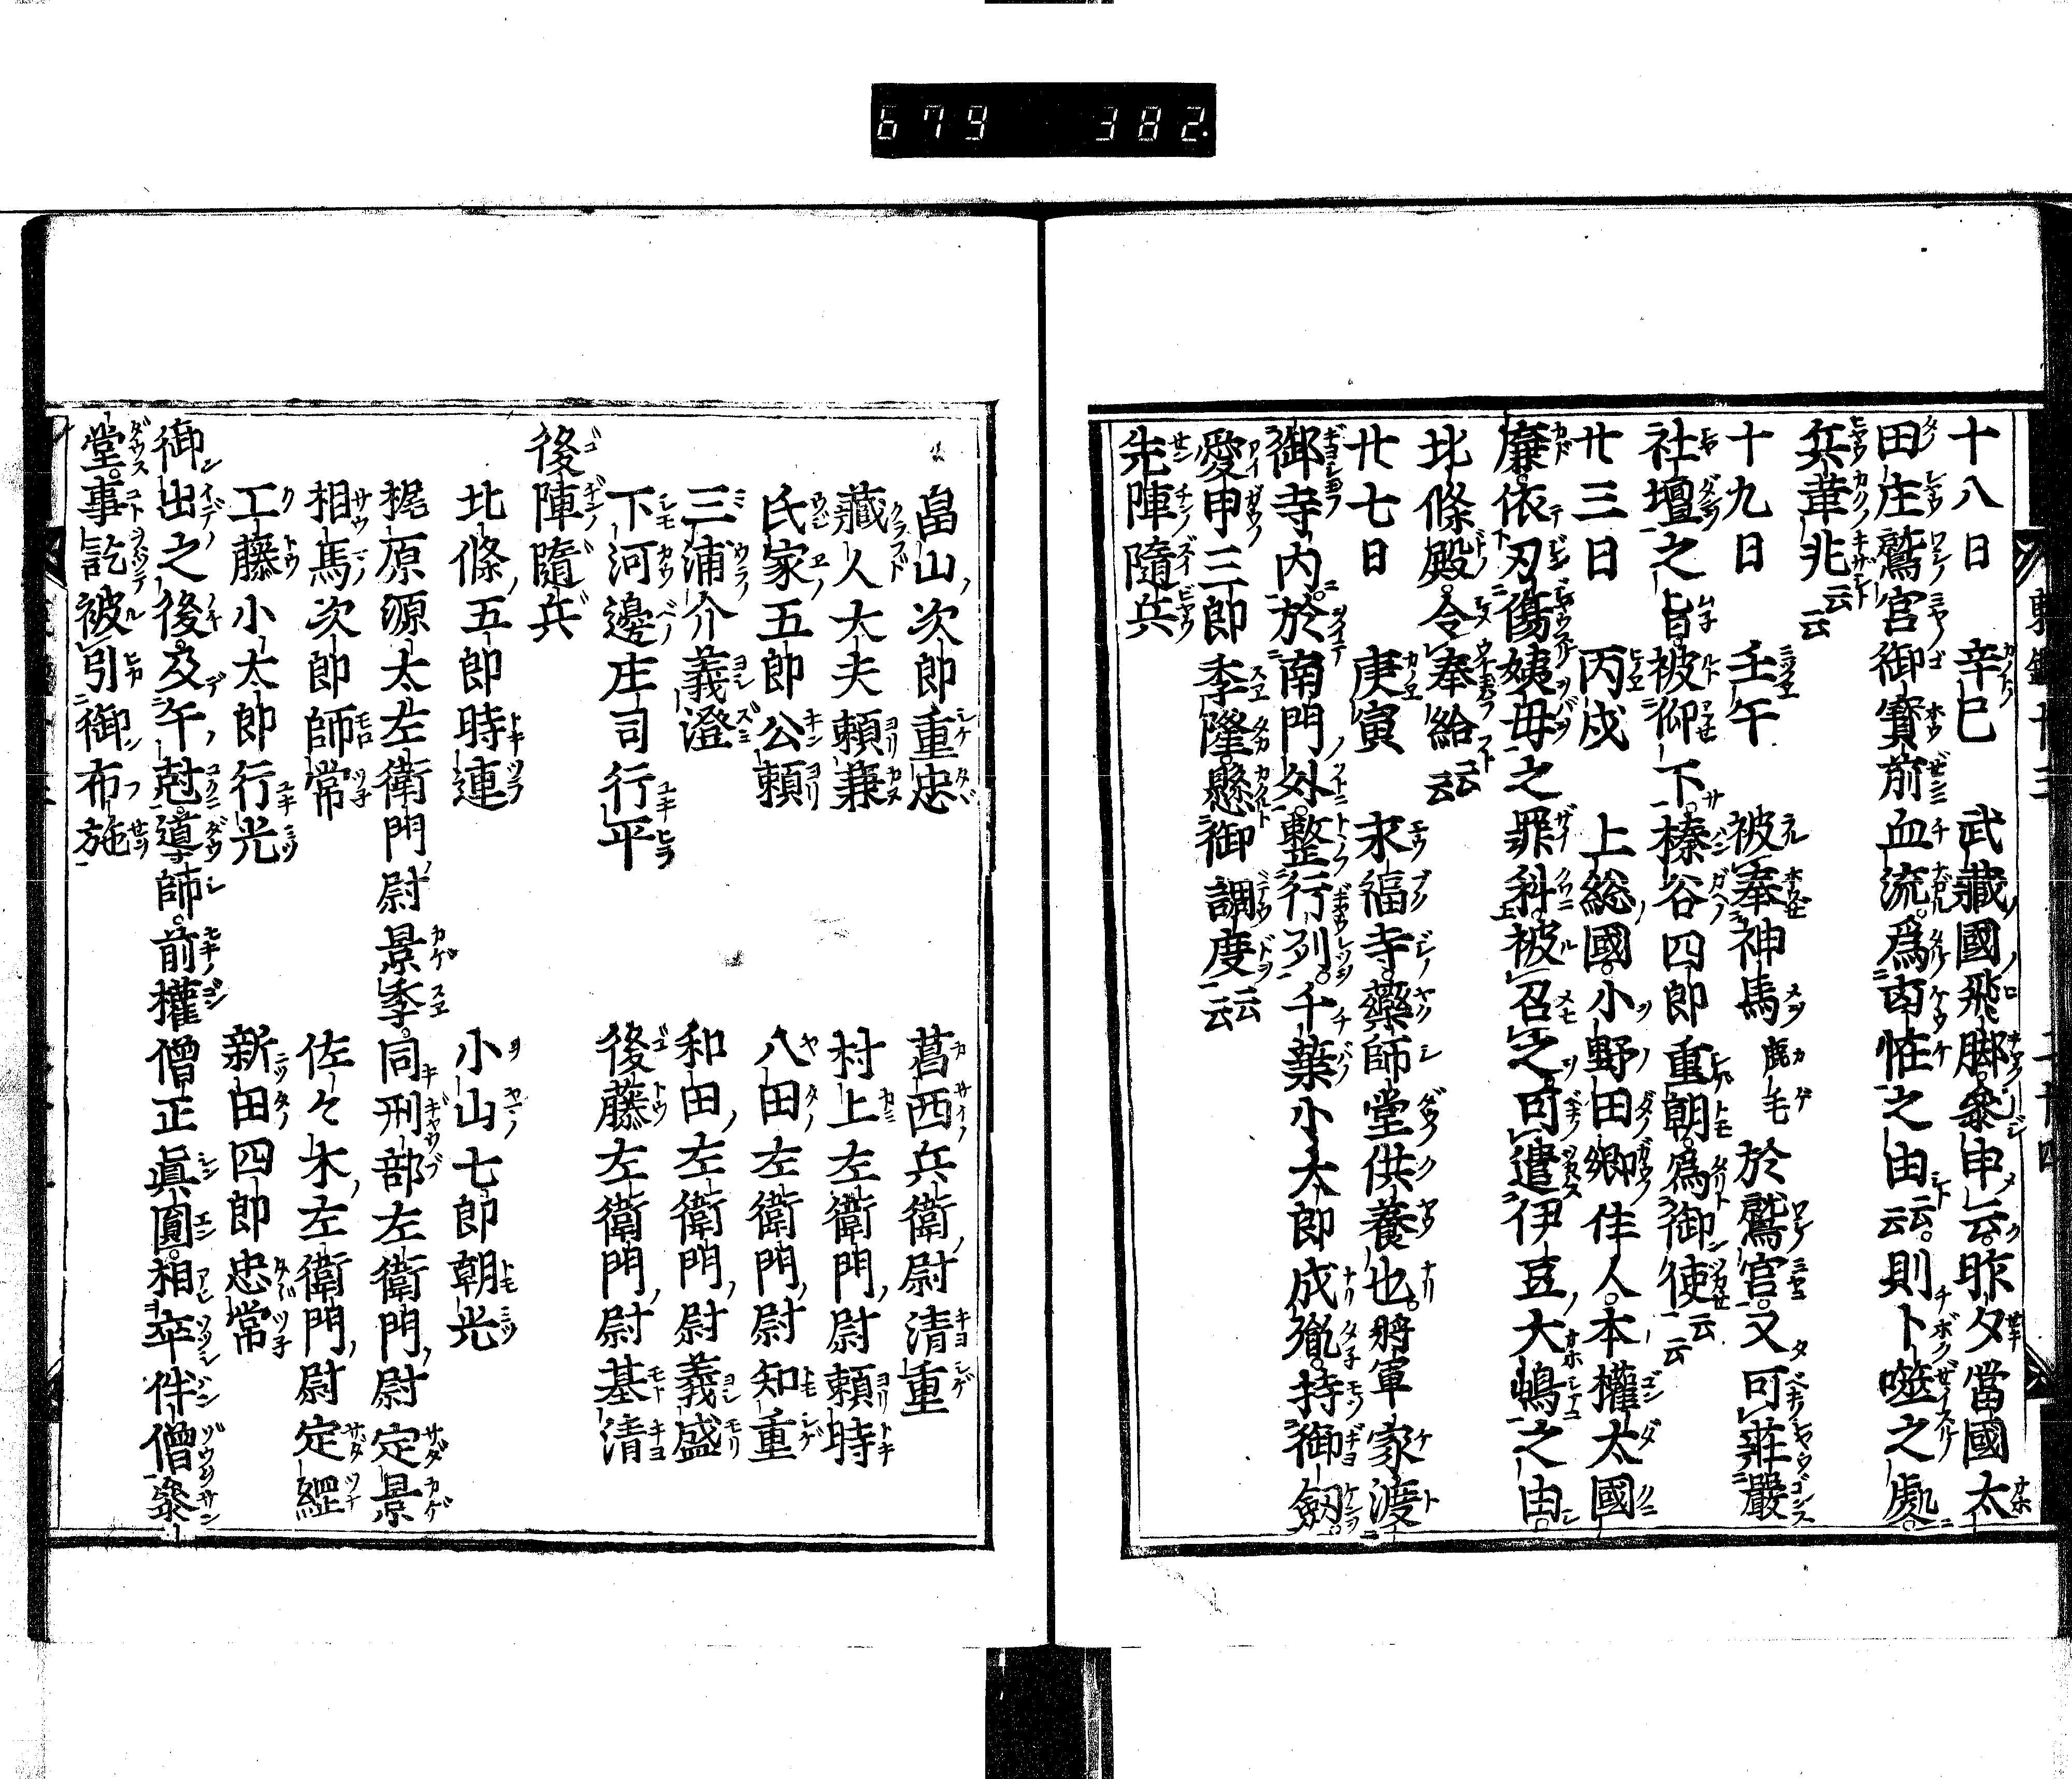 679 382
十八日 辛巳 武藏國飛脚參申云昨夕當國太
田庄鷲宮御寳前血流爲凶恠之由云云則卜噬之處
兵革兆云云
十九日 壬午 被奉神馬鹿毛於鷲宮又可莊嚴
社壇之旨被仰下榛谷四郎重朝爲御使云云
廿三日 丙戌 上総國小野田郷住人本權太國
廉依刃傷姨毋之罪科被召之可遣伊豆大嶋之由
北條殿令奉給云云
廿七日 庚寅 永福寺藥師堂供養也將軍家渡
御寺内於南門外整行列千葉小太郎成胤持御劔
愛甲三郎季隆懸御調度云云
先陣隨兵
畠山次郎重忠 葛西兵衛尉清重
藏人大夫頼兼 村上左衛門尉頼時
氏家五郎公頼 八田左衛門尉知重
三浦介義澄 和田左衛門尉義盛
下河邊庄司行平 後藤左衛門尉基清
後陣隨兵
北條五郎時連 小山七郎朝光
梶原源太左衛門尉景季同刑部左衛門尉定景
相馬次郎師常 佐々木左衛門尉定經
工藤小太郎行光 新田四郎忠常
御出之後及午尅導師前權僧正眞圓相率伴僧參
堂事訖被引御布施